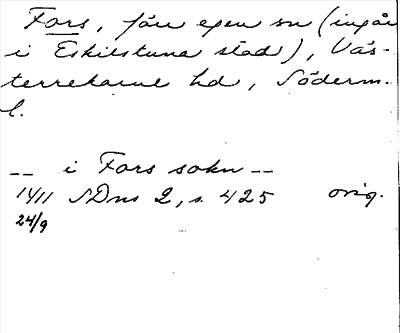 Fors, förr egen sn (ingår
i Eskilstuna stad), Väs-
terrekarne hd, Söderm.
l.
-- i Fors sokn --
1411 SDns 2, s. 425 orig.
24/9